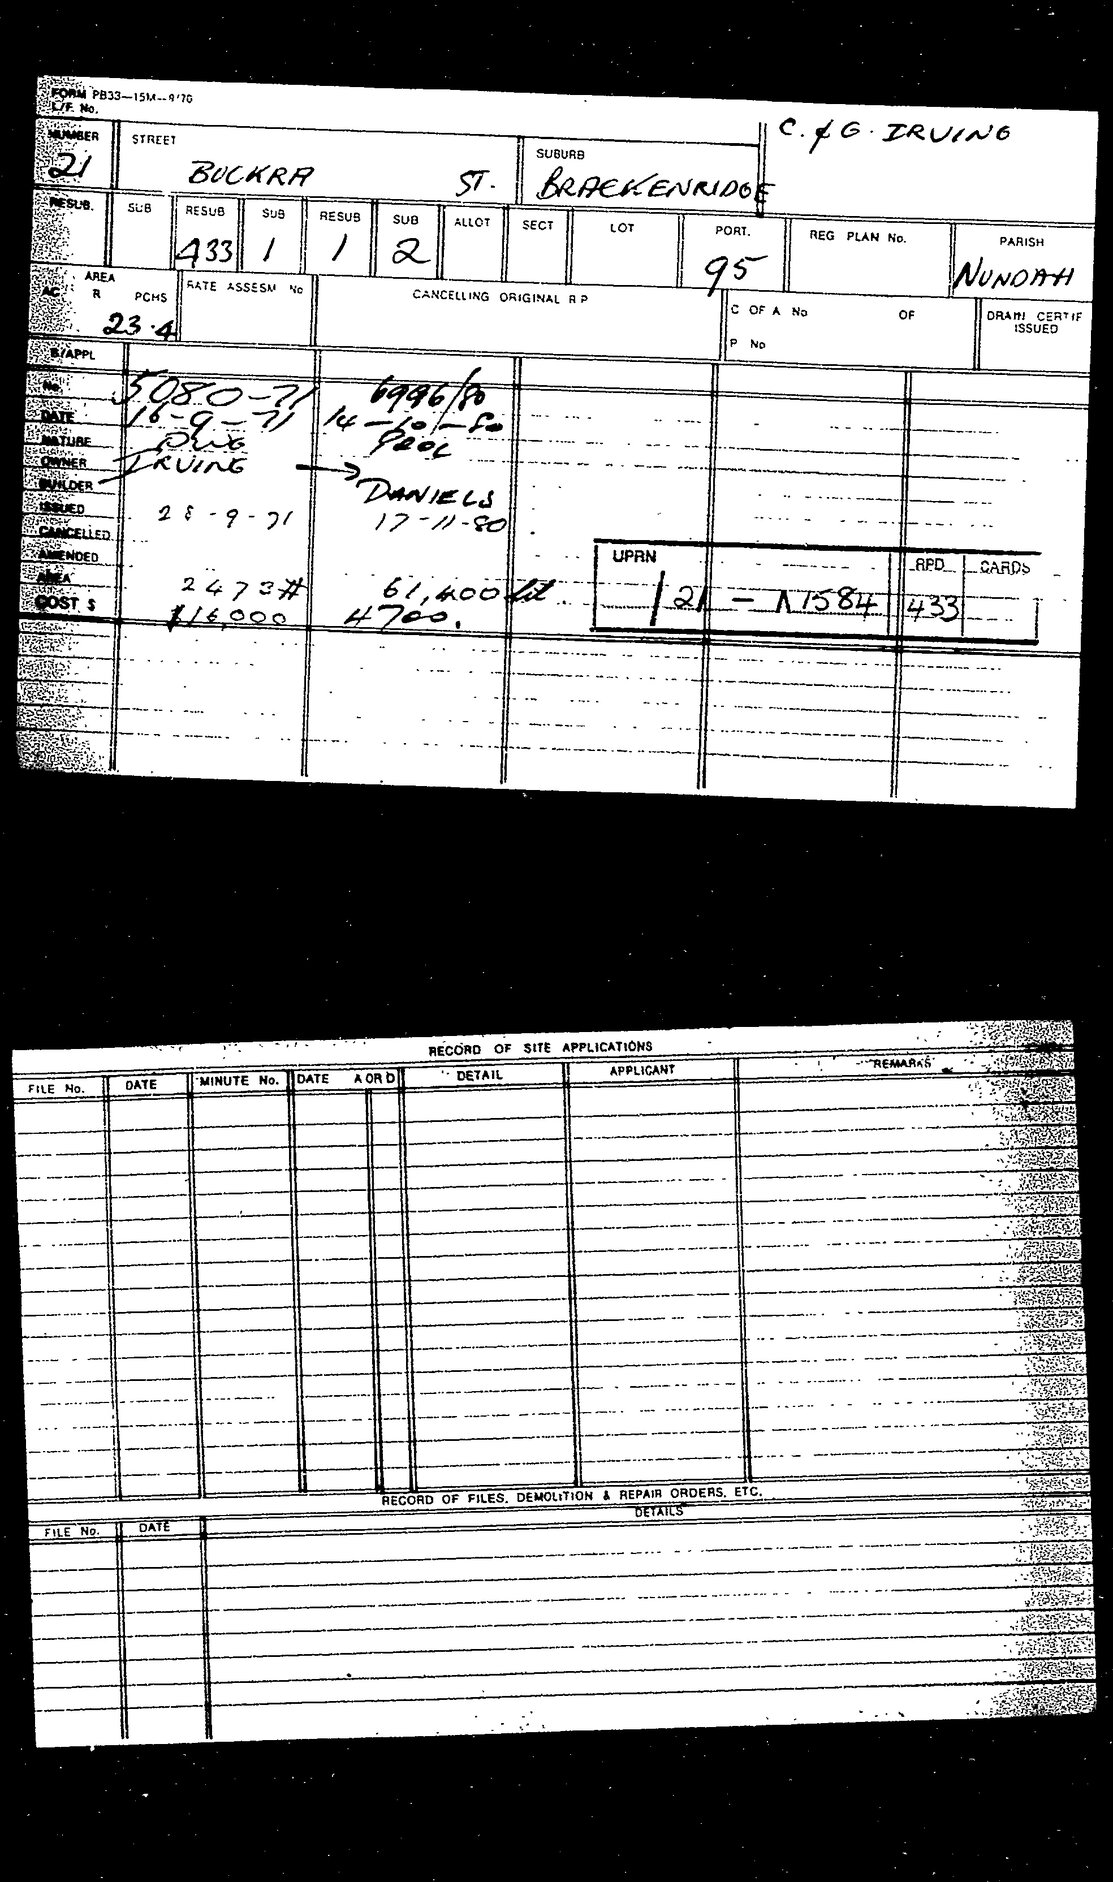 FORM PB33—15M—9/70
L/F. No.
C. & G. IRVING
NUMBER STREET SUBURB
21 BUCKRA ST. BRACKENRIDGE
RESUB. SUB RESUB SUB RESUB SUB ALLOT SECT LOT PORT. REG PLAN No. PARISH
433 1 1 2 95 NUNDAH
AREA
AC R PCHS RATE ASSESM No CANCELLING ORIGINAL R P C OF A No OF DRAIN CERTIF
ISSUED
23.4 P No
B/APPL
No. 5080-71 6996/80
DATE 16-9-71 14-10-80
NATURE DWG POOL
OWNER IRVING →
BUILDER DANIELS
ISSUED 28-9-71 17-11-80
CANCELLED
AMENDED UPRN RPD CARDS
AREA 2473# 61,400 lit
/21 - N1584 433
COST $ $16,000 4700.
RECORD OF SITE APPLICATIONS
FILE No. DATE MINUTE No. DATE A OR D DETAIL APPLICANT REMARKS
RECORD OF FILES, DEMOLITION & REPAIR ORDERS, ETC.
FILE No. DATE DETAILS